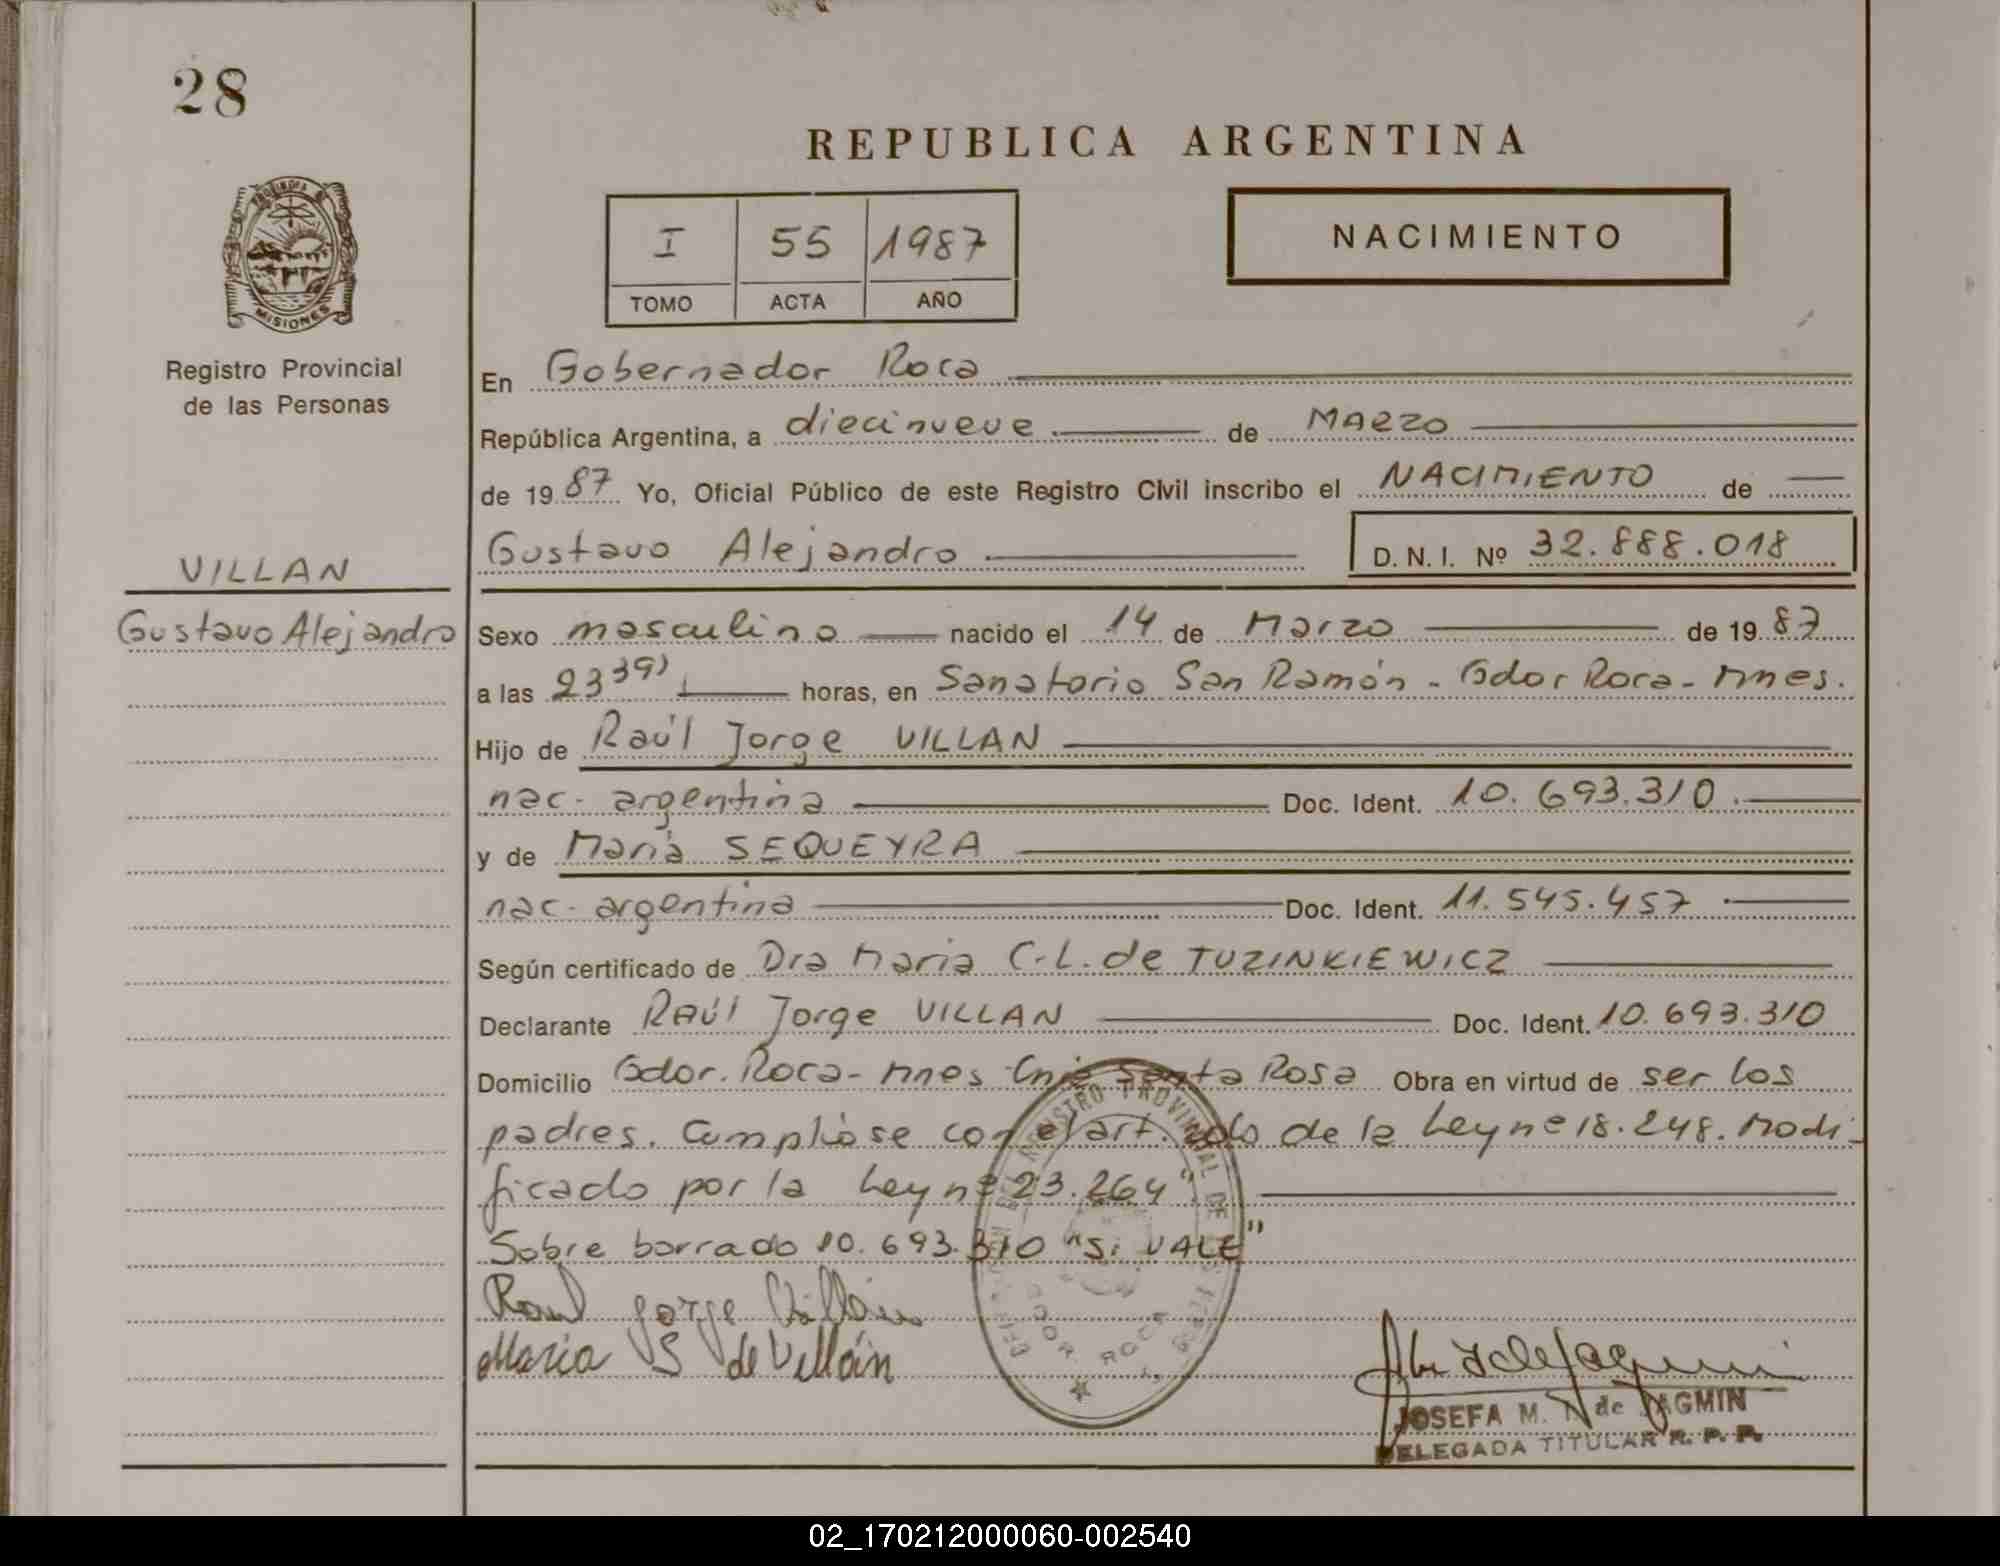 28
REPUBLICA ARGENTINA
I 55 1987
TOMO ACTA AÑO
NACIMIENTO
PROVINCIA DE
MISIONES
Registro Provincial
de las Personas
VILLAN
Gustavo Alejandro
En Gobernador Roca
República Argentina, a diecinueve de MARZO
de 1987 Yo, Oficial Público de este Registro Civil inscribo el NACIMIENTO de
Gustavo Alejandro D. N. I. Nº 32.888.018
Sexo masculino nacido el 14 de Marzo de 1987
a las 23 39) horas, en Sanatorio San Ramón - Gdor Roca - Mnes.
Hijo de Raúl Jorge VILLAN
nac. argentina Doc. Ident. 10.693.310.
y de María SEQUEYRA
nac. argentina Doc. Ident. 11.545.457
Según certificado de Dra Maria C.L. de TUZINKIEWICZ
Declarante RAÚl Jorge VILLAN Doc. Ident. 10.693.310
Domicilio Gdor. Roca - Mnes Cnia Santa Rosa Obra en virtud de ser los
padres. Cumpliose con el art. de la Ley nº 18.248. Modi-
ficado por la Ley nº 23.264"
Sobre borrado 10.693.310 "Si VALE"
Raul Jorge Villán
Maria S de Villán
REGISTRO PROVINCIAL DE
GDOR. ROCA
JOSEFA M. de JAGMIN
DELEGADA TITULAR R. P. P.
02_170212000060-002540